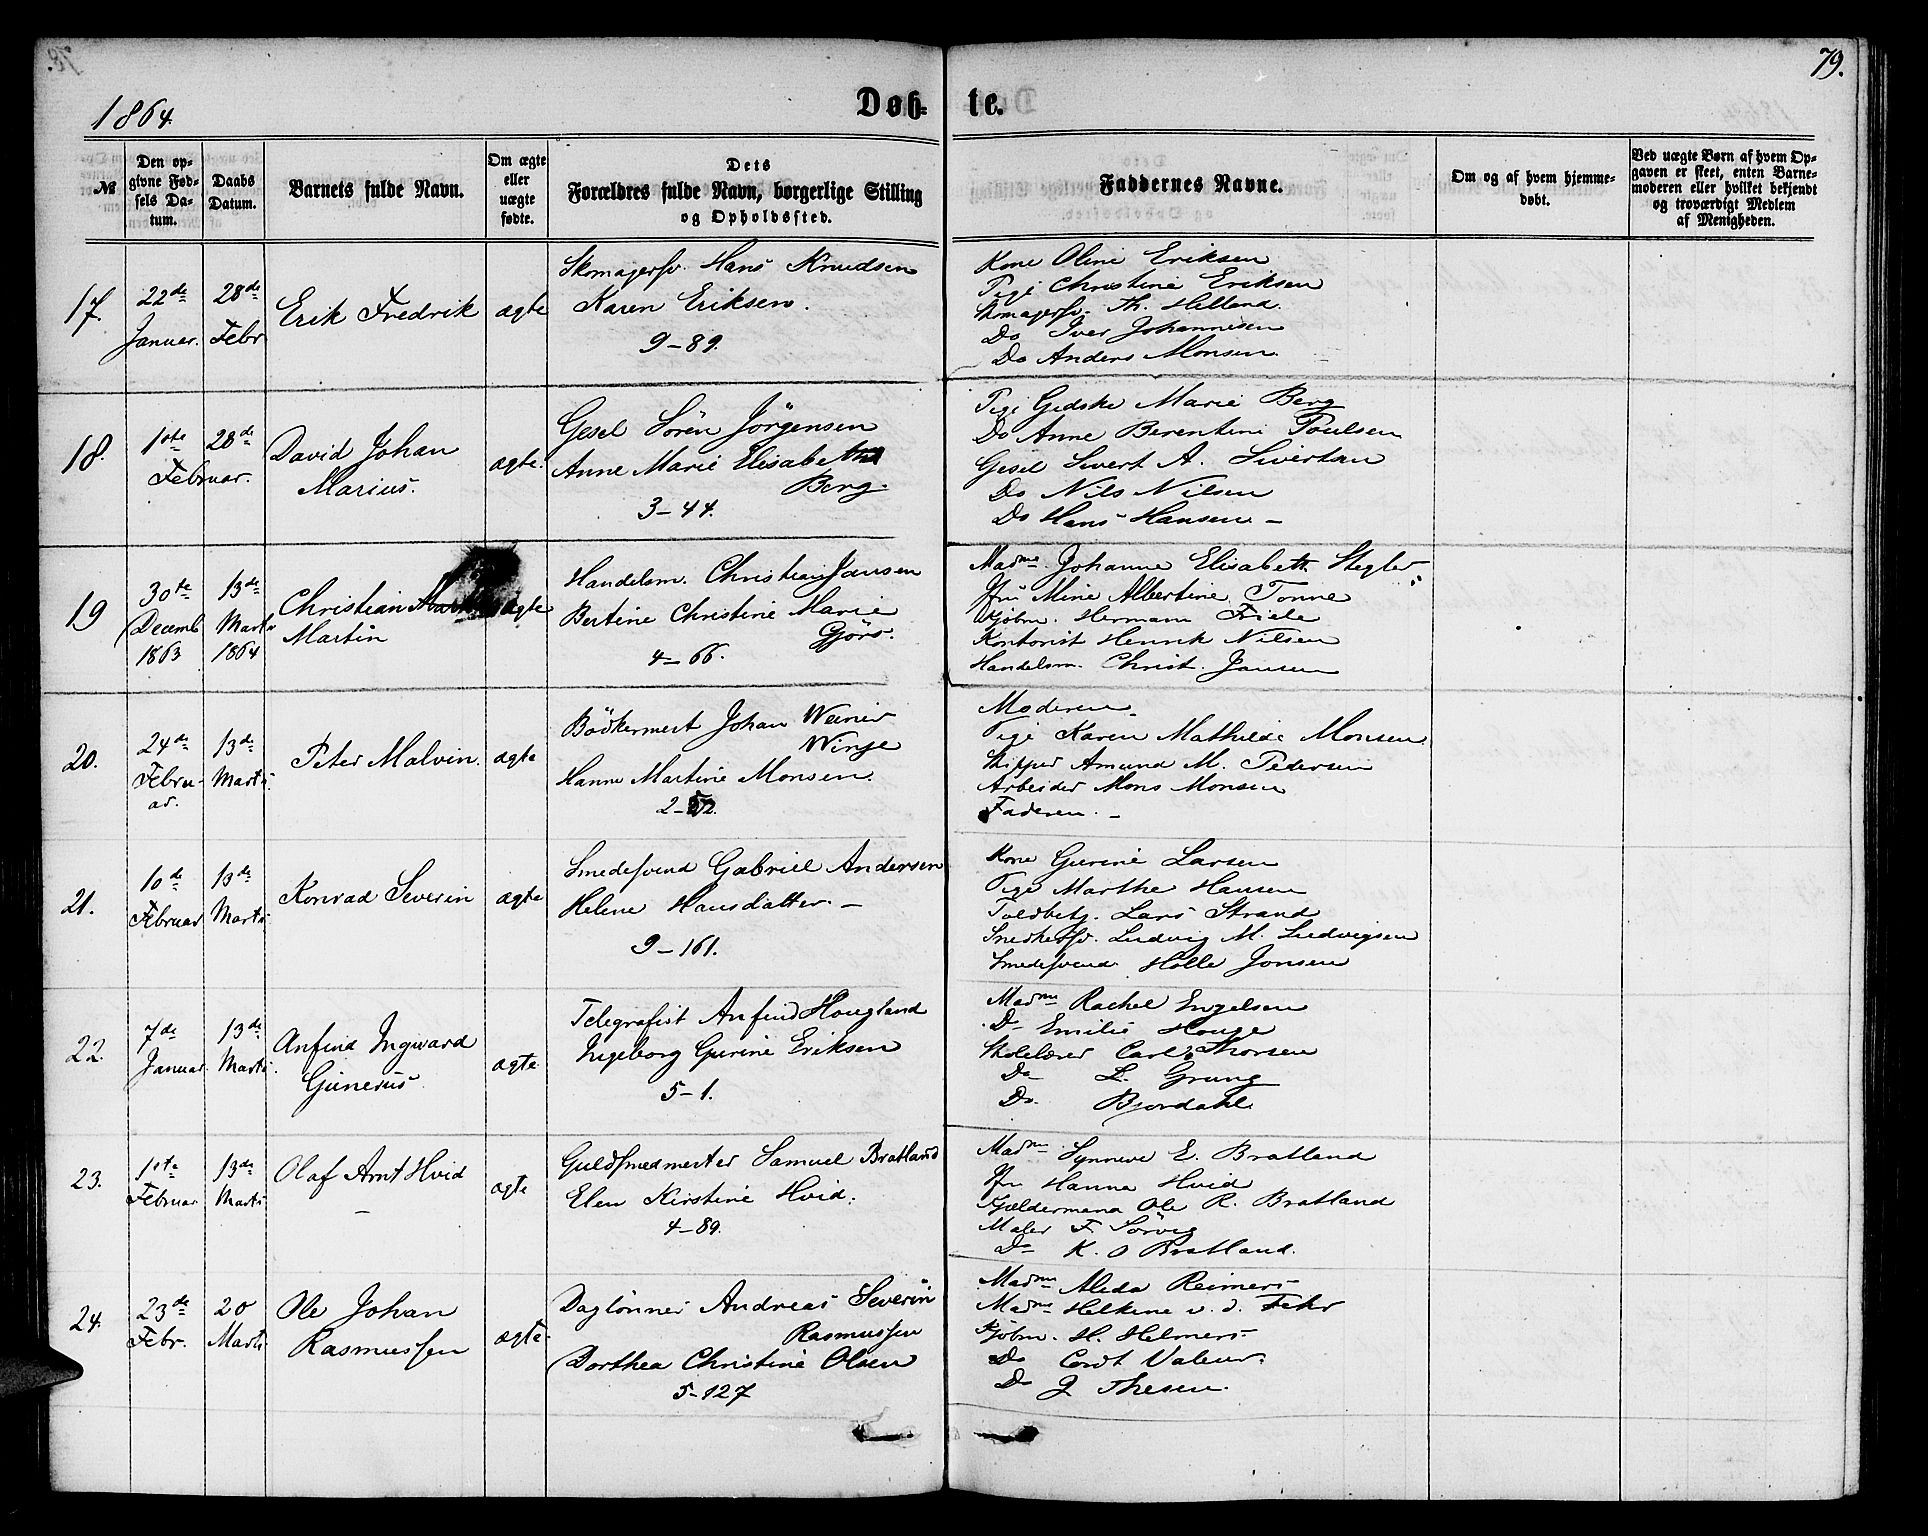 79.
1864.
Døb-te.
№
Den op-
givne Fød-
sels Da-
tum.
Daabs
Datum.
Barnets fulde Navn.
Om ægte
eller
uægte
fødte.
Dets
Forældres fulde Navn, borgerlige Stilling
og Opholdssted.
Faddernes Navne.
Om og af hvem hjemme-
døbt.
Ved uægte Børn af hvem Op-
gaven er skeet, enten Barne-
moderen eller hvilket bekjendt
og troværdigt Medlem
af Menigheden.
17.
22de
Januar.
28de
Febr
Erik Fredrik
ægte
Skomagersv. Hans Knudsen
Karen Eriksen.
9-89.
Kone Oline Eriksen
Pige Christine Eriksen
Skomagersv. Th. Helland.
Do Iver Johannesen
Do Anders Monsen
18.
1ste
28de
Februar.
David Johan
Marius.
ægte.
Gesel Sören Jörgensen
Anne Marie Elisabeth
Berg.
3-44.
Pige Gedske Marie Berg
Do Anne Berentine Poulsen
Gesel Sivert A. Sivertsen
Do Nils Nilsen
Do Hans Hansen -
19
30te
Decemb
1863
13de
Marts
1864
Christian
Martin
ægte
Handelsm. Christian Jansen
Bertine Christine Marie
Gjörs.
4-66.
Madme Johanne Elisabeth Stegler
Jfru Mine Albertine Tonne
Kjöbm. Herman Friele
Kontorist Henrik Nilsen
Handelsm. Christ. Jansen
20.
24de
Febru-
ar.
13de
Marts.
Peter Malvin.
ægte
Bödkermest Johan Werner
Winge
Hanne Martine Monsen.
2-52.
Moderen
Pige Karen Mathilde Monsen
Skipper Amund M. Pedersen
Arbeider Mons Monsen
Faderen. -
21.
10de
Februar
13de
Marts
Konrad Severin
ægte
Smedesvend Gabriel Andersen
Helene Hansdatter. -
9-161.
Kone Gurine Larsen
Pige Marthe Hansen
Toldbetj. Lars Strand
Snedkersv. Ludvig M. Ludvigsen
Smedesvend Holle Jonsen
22.
7de
Januar
13de
Marts.
Anfind Ingward
Gunerius
ægte
Telegrafist Anfind Hougland
Ingeborg Gurine Eriksen
5-1.
Madme Rachel Engelsen
Do Emilie Houge
Skolelærer Carl Thorsen
Do L. Grung
Do. Bjordahl
23.
1ste
Februar
13de
Marts
Olaf Arnt Hvid
-
ægte
Guldsmedmester Samuel Bratland
Elen Kirstine Hvid.
4-89.
Madme Synneve E. Bratland
Jfr Hanna Hvid
Kjældermand Ole R. Bratland
Maler F. Sörvig
Do K. O Bratland.
24.
23de
Febr.
20
Marts
Ole Johan
Rasmussen
ægte.
Daglönner Andreas Severin
Rasmussen
Dorthea Christine Olsen
5-127
Madme Aleda Reimers
Madme Helkine v. d. Fehr
Kjöbm. H. Helmers
Do Cordt Valeur.
Do J Thesen.